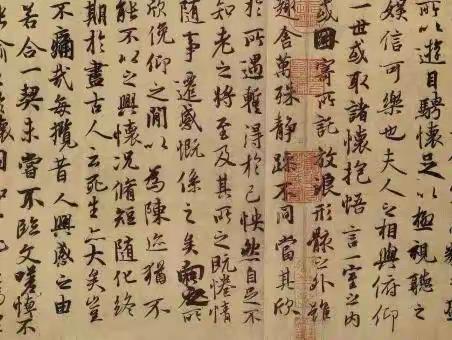 所以遊目騁懷足以極視聽之
娛信可樂也夫人之相與俯仰
一世或取諸懷抱悟言一室之內
或因寄所託放浪形骸之外雖
趣舍萬殊靜躁不同當其欣
於所遇蹔得於己怏然自足不
知老之將至及其所之既惓情
隨事遷感慨係之矣向之所
欣俛仰之閒以為陳迹猶不
能不以之興懷況脩短隨化終
期於盡古人云死生亦大矣豈
不痛哉每攬昔人興感之由
若合一契未嘗不臨文嗟悼不